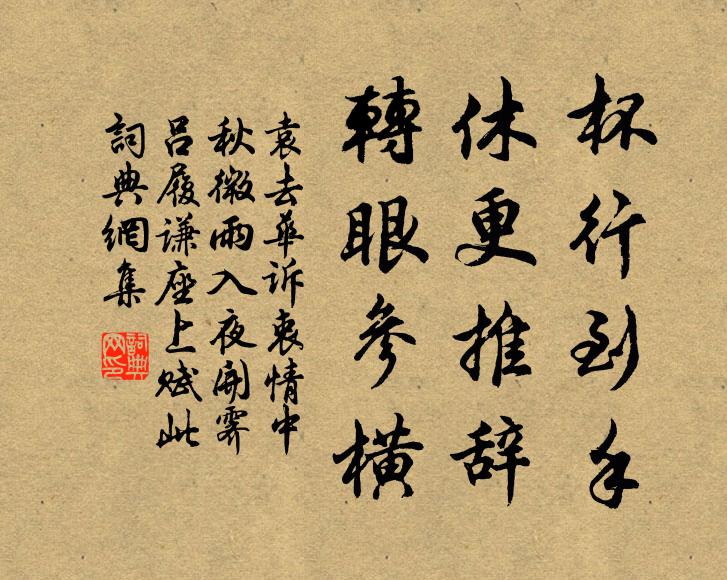 杯行到手
休更推辞
轉眼參橫
袁去華诉衷情中
秋微雨入夜開霽
吕履谦座上赋此
詞典網集
詞典网印